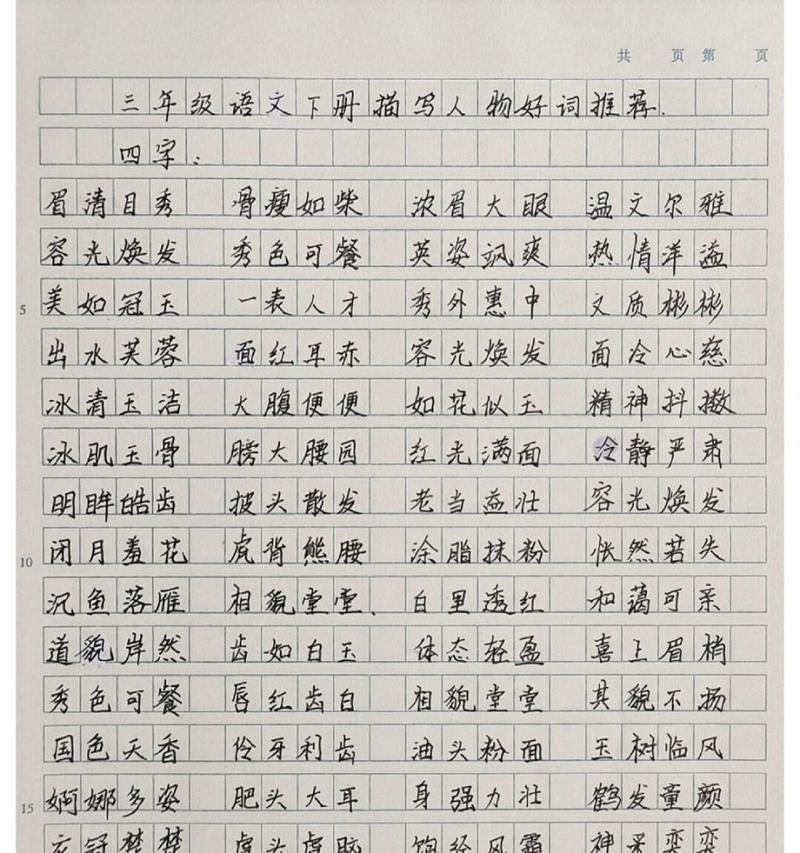 共 页 第 页
三年级语文下册描写人物好词推荐.
四字:
眉清目秀 骨瘦如柴 浓眉大眼 温文尔雅
容光焕发 秀色可餐 英姿飒爽 热情洋溢
5 美如冠玉 一表人才 秀外惠中 文质彬彬
出水芙蓉 面红耳赤 容光焕发 面冷心慈
冰清玉洁 大腹便便 如花似玉 精神抖擞
冰肌玉骨 膀大腰园 红光满面 冷静严肃
明眸皓齿 披头散发 老当益壮 容光焕发
10 闭月羞花 虎背熊腰 涂脂抹粉 怅然若失
沉鱼落雁 相貌堂堂、 白里透红 和蔼可亲
道貌岸然 齿如白玉 体态轻盈 喜上眉梢
秀色可餐 唇红齿白 相貌堂堂 其貌不扬
国色天香 伶牙利齿 油头粉面 玉树临风
15 婀娜多姿 肥头大耳 身强力壮 鹤发童颜
衣冠楚楚 虎头虎脑 饱经风霜 神采奕奕